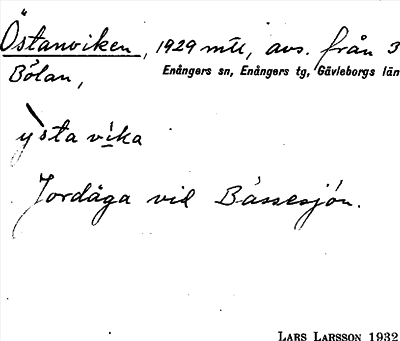 Östanviken, 1929 mtl, avs. från 3
Bölan, Enångers sn, Enångers tg, Gävleborgs län
ysta vika
Jordäga vid Båssesjön.
LARS LARSSON 1932